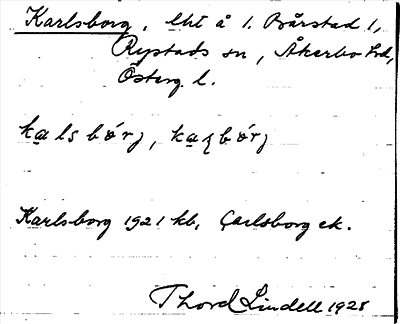 Karlsborg, lht å 1. Bårstad 1,
Rystads sn, Åkerbo hd,
Österg. l.
ka̲lsbórj, ka̲ʂbórj
Karlsborg 1921 kb, Carlsborg ek.
Thord Lindell 1928